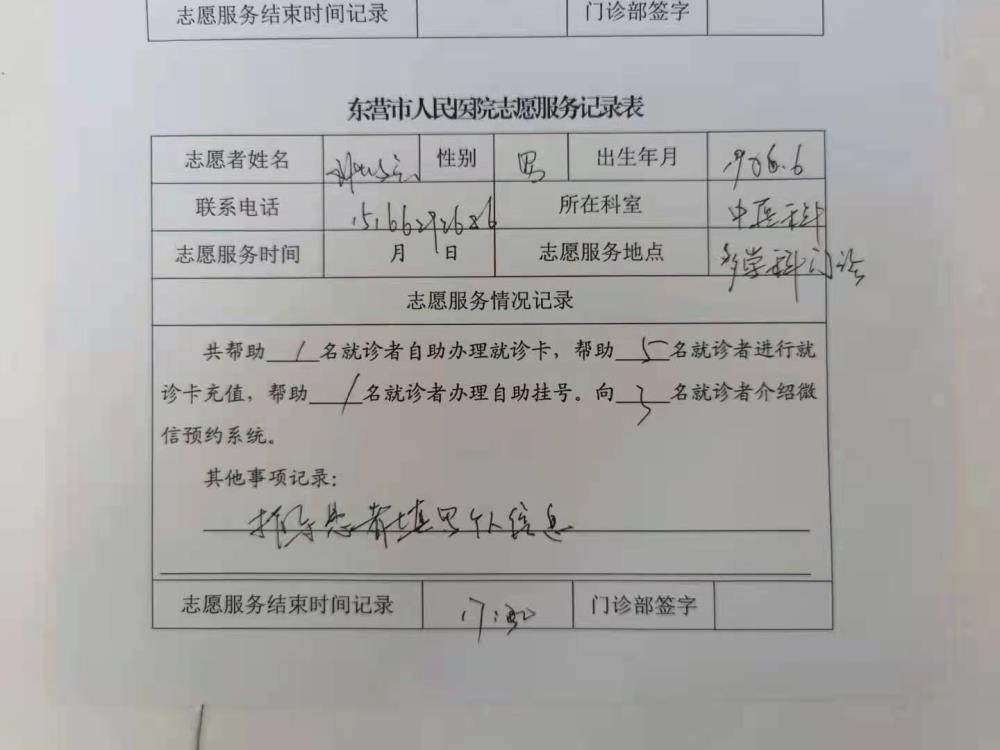 志愿服务结束时间记录 门诊部签字
东营市人民医院志愿服务记录表
志愿者姓名 性别 男 出生年月
联系电话 15166292686 所在科室 中医科
志愿服务时间 月 日 志愿服务地点 多学科门诊
志愿服务情况记录
共帮助 1 名就诊者自助办理就诊卡，帮助 5 名就诊者进行就
诊卡充值，帮助 1 名就诊者办理自助挂号。向 3 名就诊者介绍微
信预约系统。
其他事项记录：
指导患者填写个人信息
志愿服务结束时间记录 17:30 门诊部签字